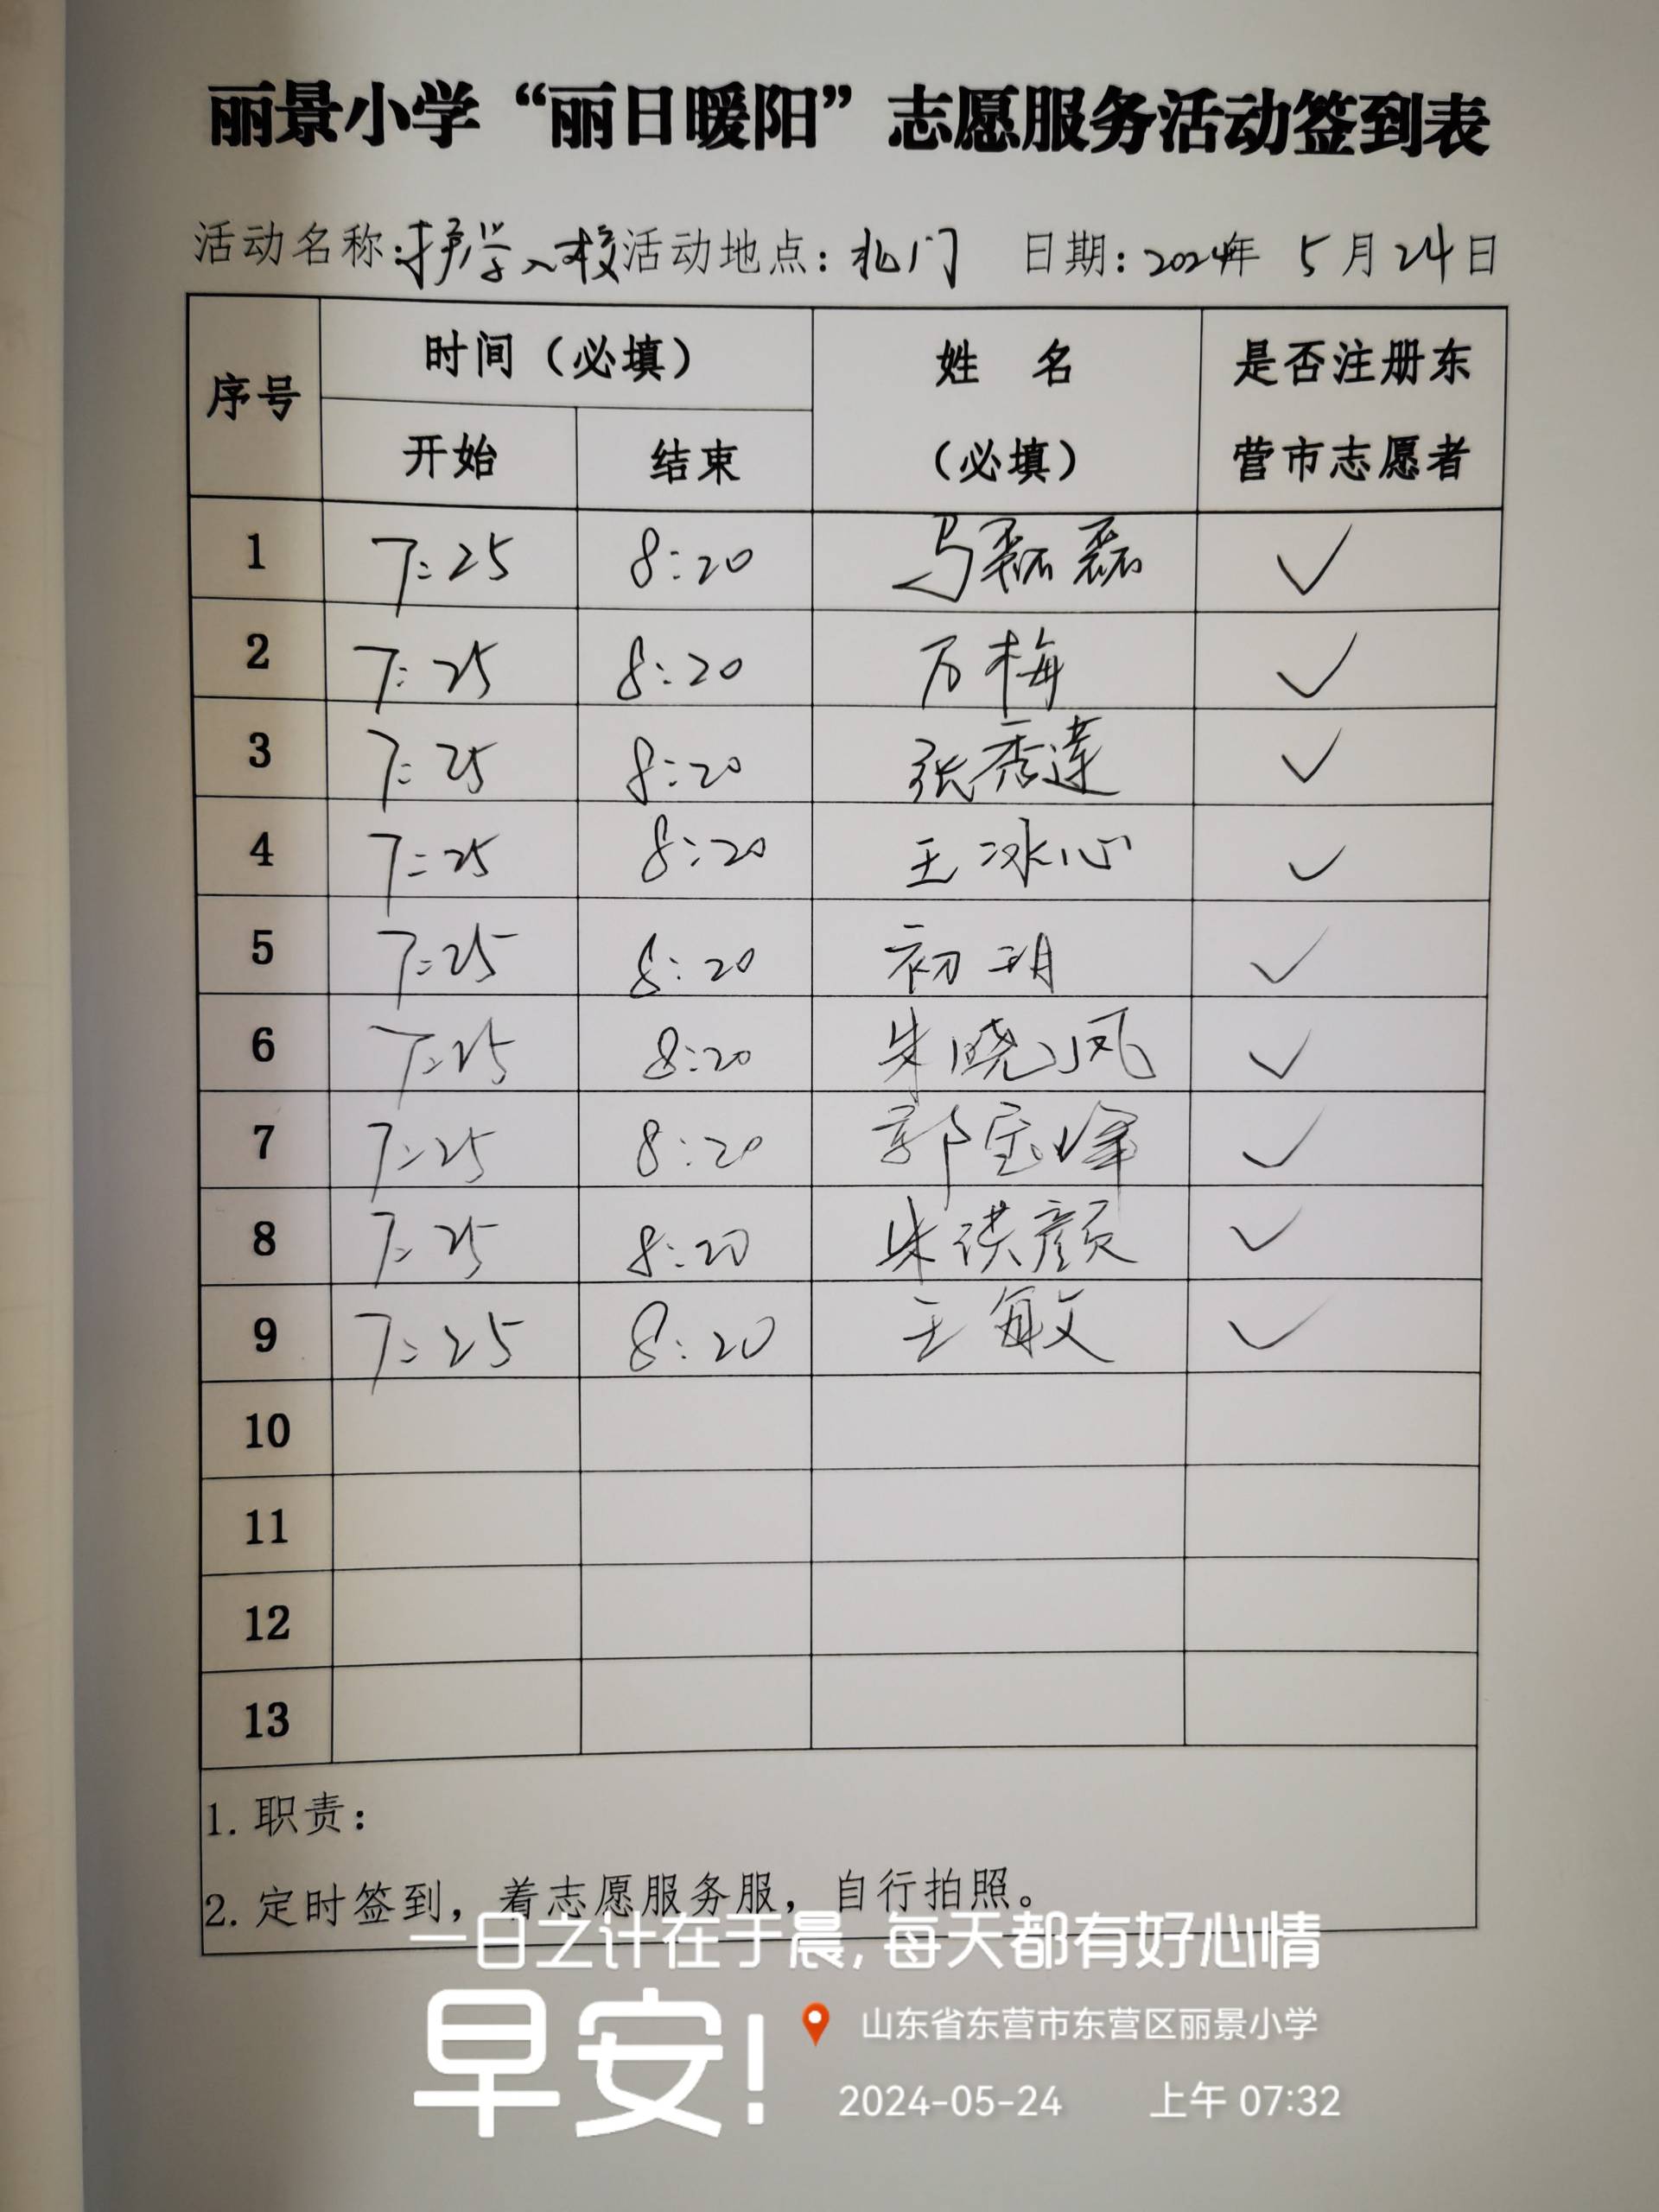 丽景小学“丽日暖阳”志愿服务活动签到表
活动名称:护学入校 活动地点:北门 日期:2024年 5月24日
序号 时间（必填） 姓 名（必填） 是否注册东营市志愿者
开始 结束
1 7:25 8:20 马磊磊 ✓
2 7:25 8:20 万梅 ✓
3 7:25 8:20 张秀莲 ✓
4 7:25 8:20 王冰心 ✓
5 7:25 8:20 初玥 ✓
6 7:25 8:20 朱晓凤 ✓
7 7:25 8:20 郭宝峰 ✓
8 7:25 8:20 朱洪颜 ✓
9 7:25 8:20 王敏 ✓
10
11
12
13
1.职责：
2.定时签到，着志愿服务服，自行拍照。
一日之计在于晨,每天都有好心情
早安!
山东省东营市东营区丽景小学
2024-05-24 上午 07:32